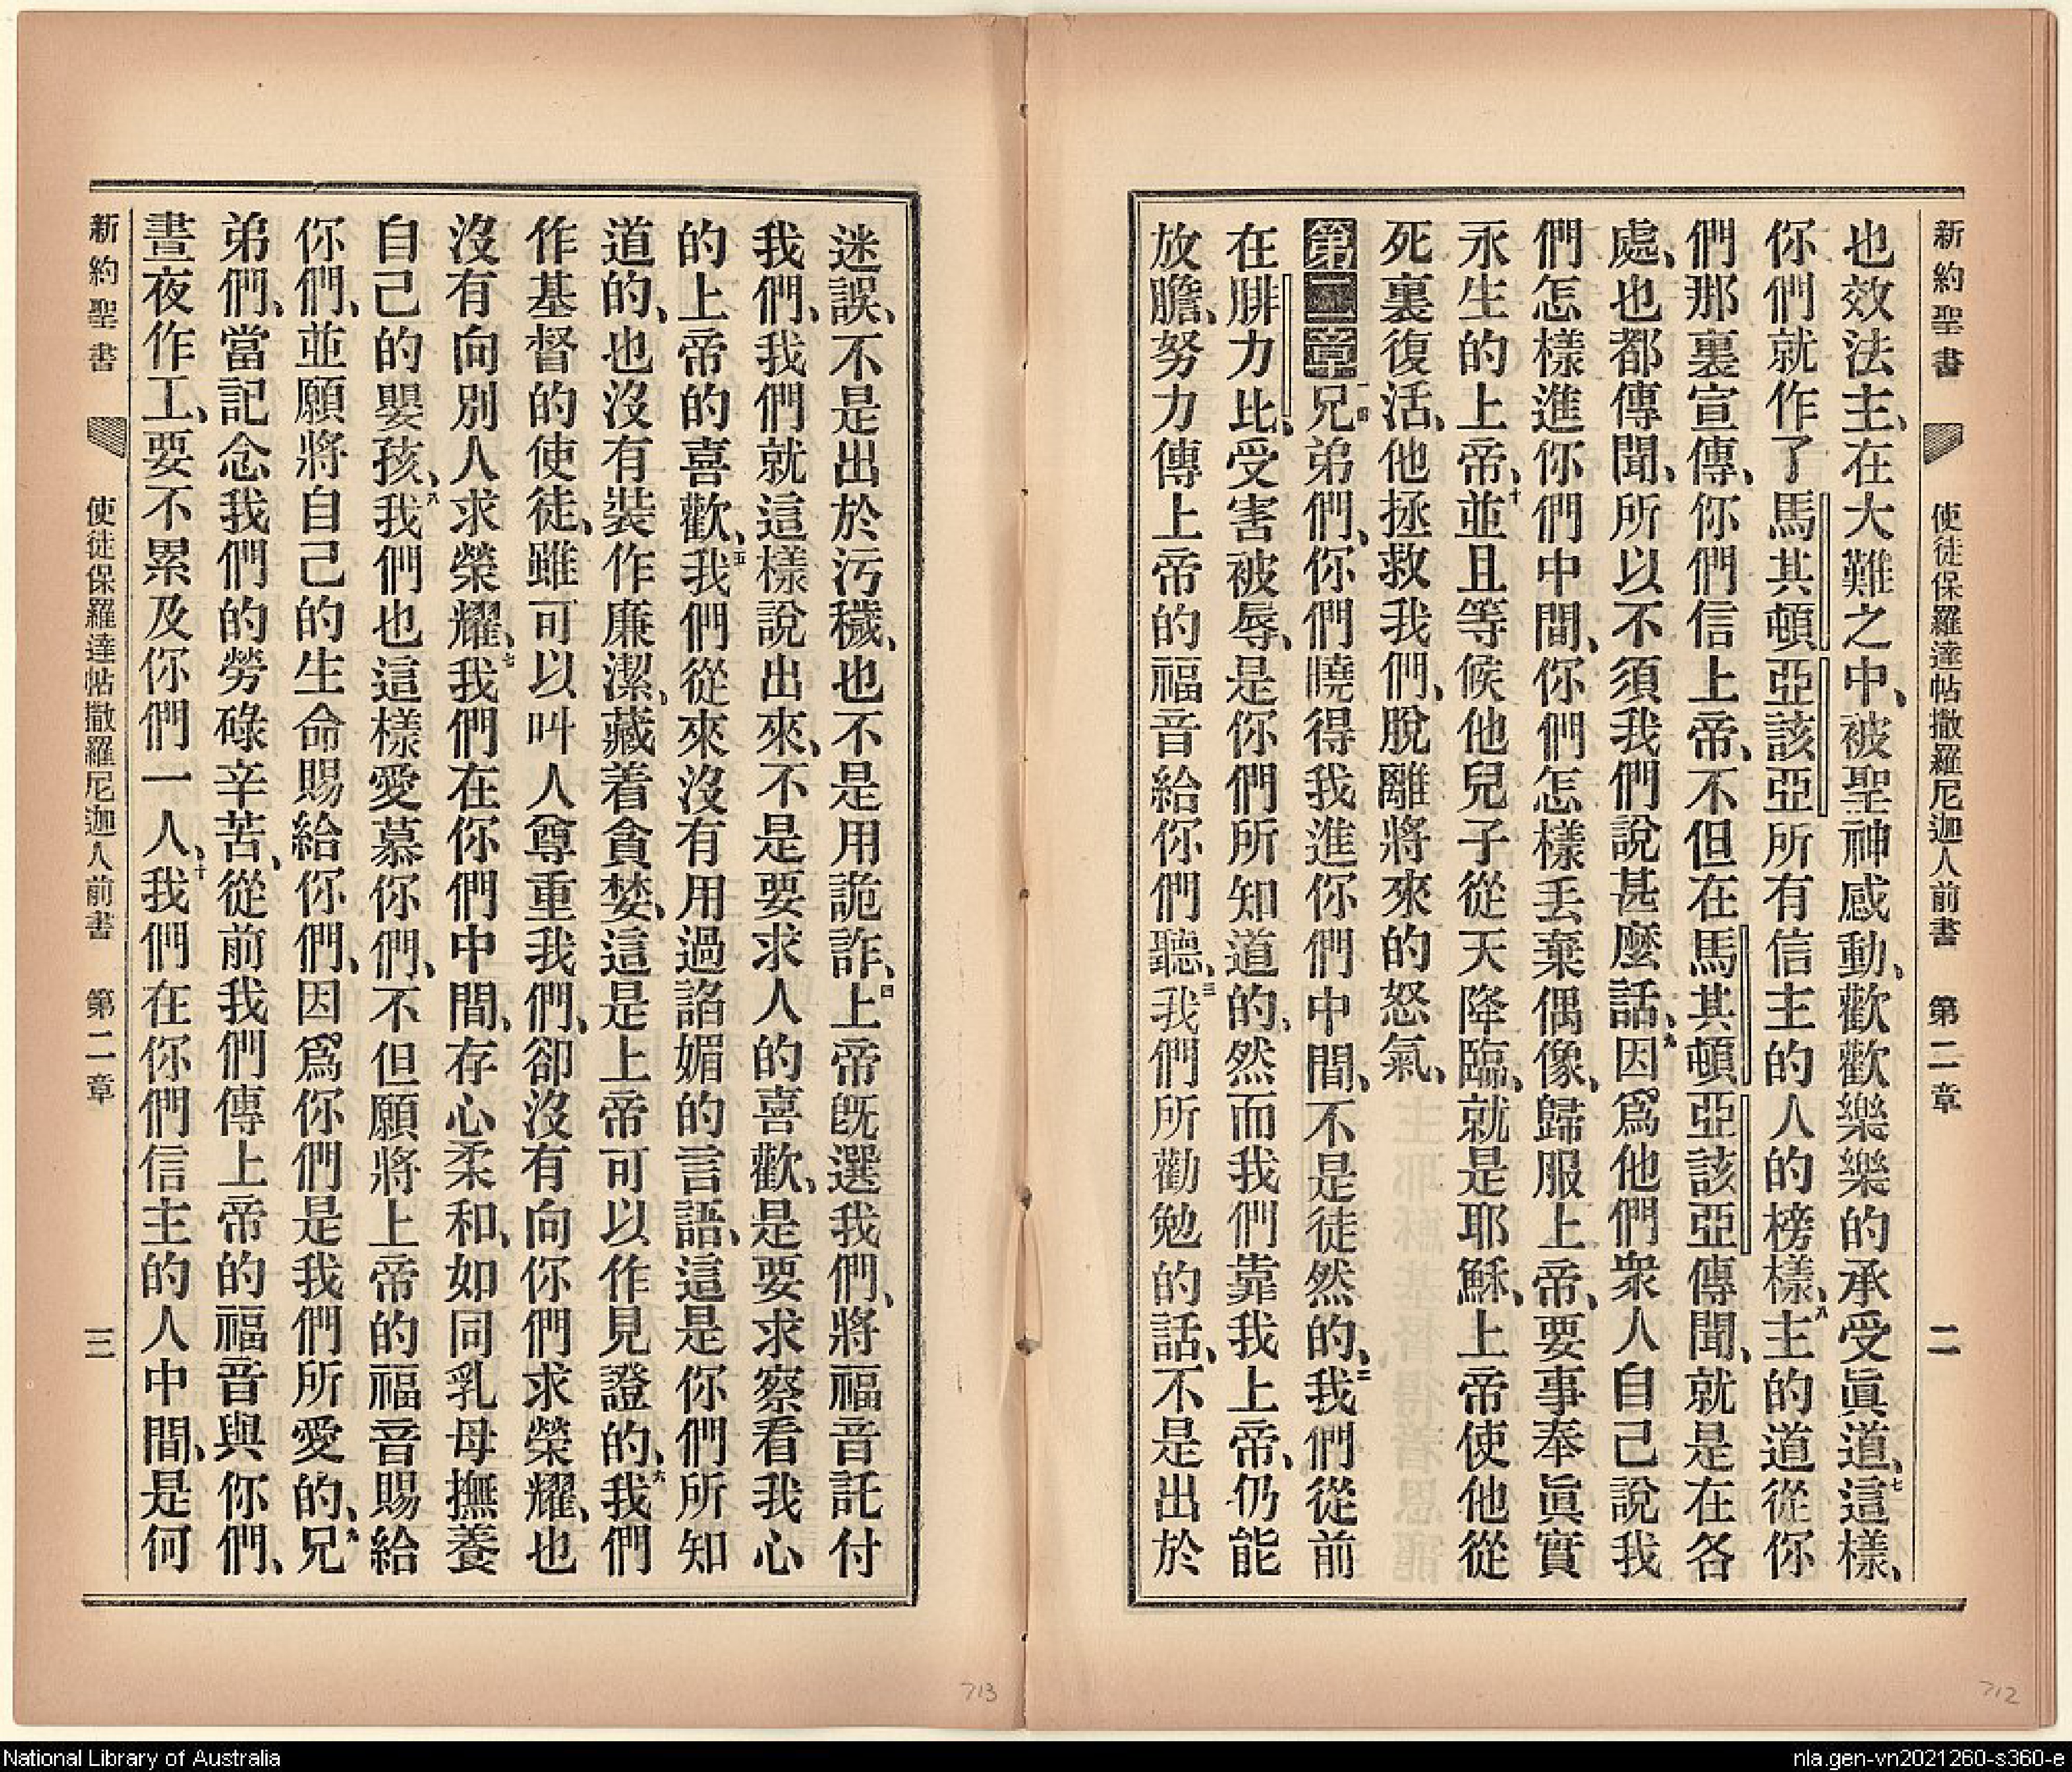 新約聖書 使徒保羅達帖撒羅尼迦人前書 第二章 二
也效法主、在大難之中、被聖神感動、歡歡樂樂的承受眞道、七這樣、
你們就作了馬其頓亞該亞所有信主的人的榜樣、八主的道從你
們那裏宣傳、你們信上帝、不但在馬其頓亞該亞傳聞、就是在各
處、也都傳聞、所以不須我們說甚麼話、九因爲他們衆人自己說我
們怎樣進你們中間、你們怎樣丟棄偶像、歸服上帝、要事奉眞實
永生的上帝、十並且等候他兒子從天降臨、就是耶穌、上帝使他從
死裏復活、他拯救我們、脫離將來的怒氣、
第二章一兄弟們、你們曉得我進你們中間、不是徒然的、二我們從前
在腓力比、受害被辱、是你們所知道的、然而我們靠我上帝、仍能
放膽、努力傳上帝的福音給你們聽、三我們所勸勉的話、不是出於
迷誤、不是出於污穢、也不是用詭詐、四上帝旣選我們、將福音託付
我們、我們就這樣說出來、不是要求人的喜歡、是要求察看我心
的上帝的喜歡、五我們從來沒有用過諂媚的言語、這是你們所知
道的、也沒有裝作廉潔、藏着貪婪、這是上帝可以作見證的、六我們
作基督的使徒、雖可以叫人尊重我們、卻沒有向你們求榮耀、也
沒有向別人求榮耀、七我們在你們中間、存心柔和、如同乳母撫養
自己的嬰孩、八我們也這樣愛慕你們、不但願將上帝的福音賜給
你們、並願將自己的生命賜給你們、因爲你們是我們所愛的、九兄
弟們、當記念我們的勞碌辛苦、從前我們傳上帝的福音與你們、
晝夜作工、要不累及你們一人、十我們在你們信主的人中間、是何
新約聖書 使徒保羅達帖撒羅尼迦人前書 第二章 三
713
712
National Library of Australia
nla.gen-vn2021260-s360-e